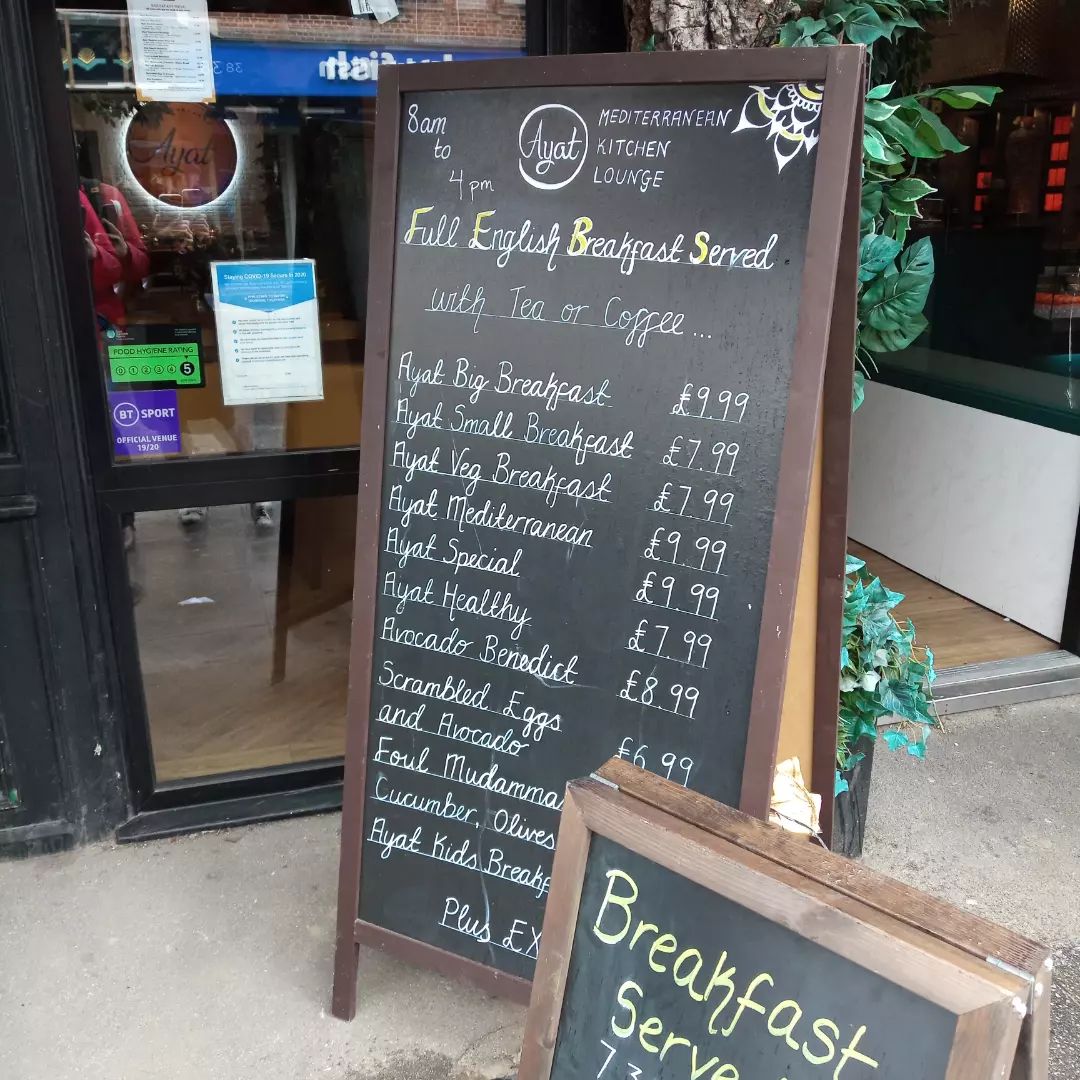 8am
to
4 pm
Ayat
MEDITERRANEAN
KITCHEN
LOUNGE
Full English Breakfast Served
with Tea or Coffee...
Ayat Big Breakfast £9.99
Ayat Small Breakfast £7.99
Ayat Veg Breakfast £7.99
Ayat Mediterranean £9.99
Ayat Special £9.99
Ayat Healthy £7.99
Avocado Benedict £8.99
Scrambled Eggs
and Avocado £6.99
Foul Mudamma
Cucumber, Olives
Ayat Kids Breakf
Plus EX
Breakfast
Serve
7 3
Ayat
Staying COVID-19 Secure in 2020
FOOD HYGIENE RATING
0 1 2 3 4 5
BT SPORT
OFFICIAL VENUE
19/20